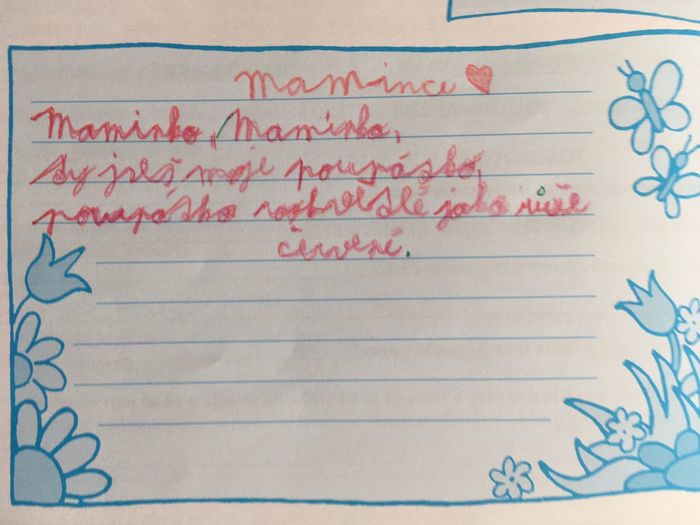 Mamince
Maminko, Maminko,
ty jseš moje poupátko,
poupátko rozkvetlé jako růže
červené.